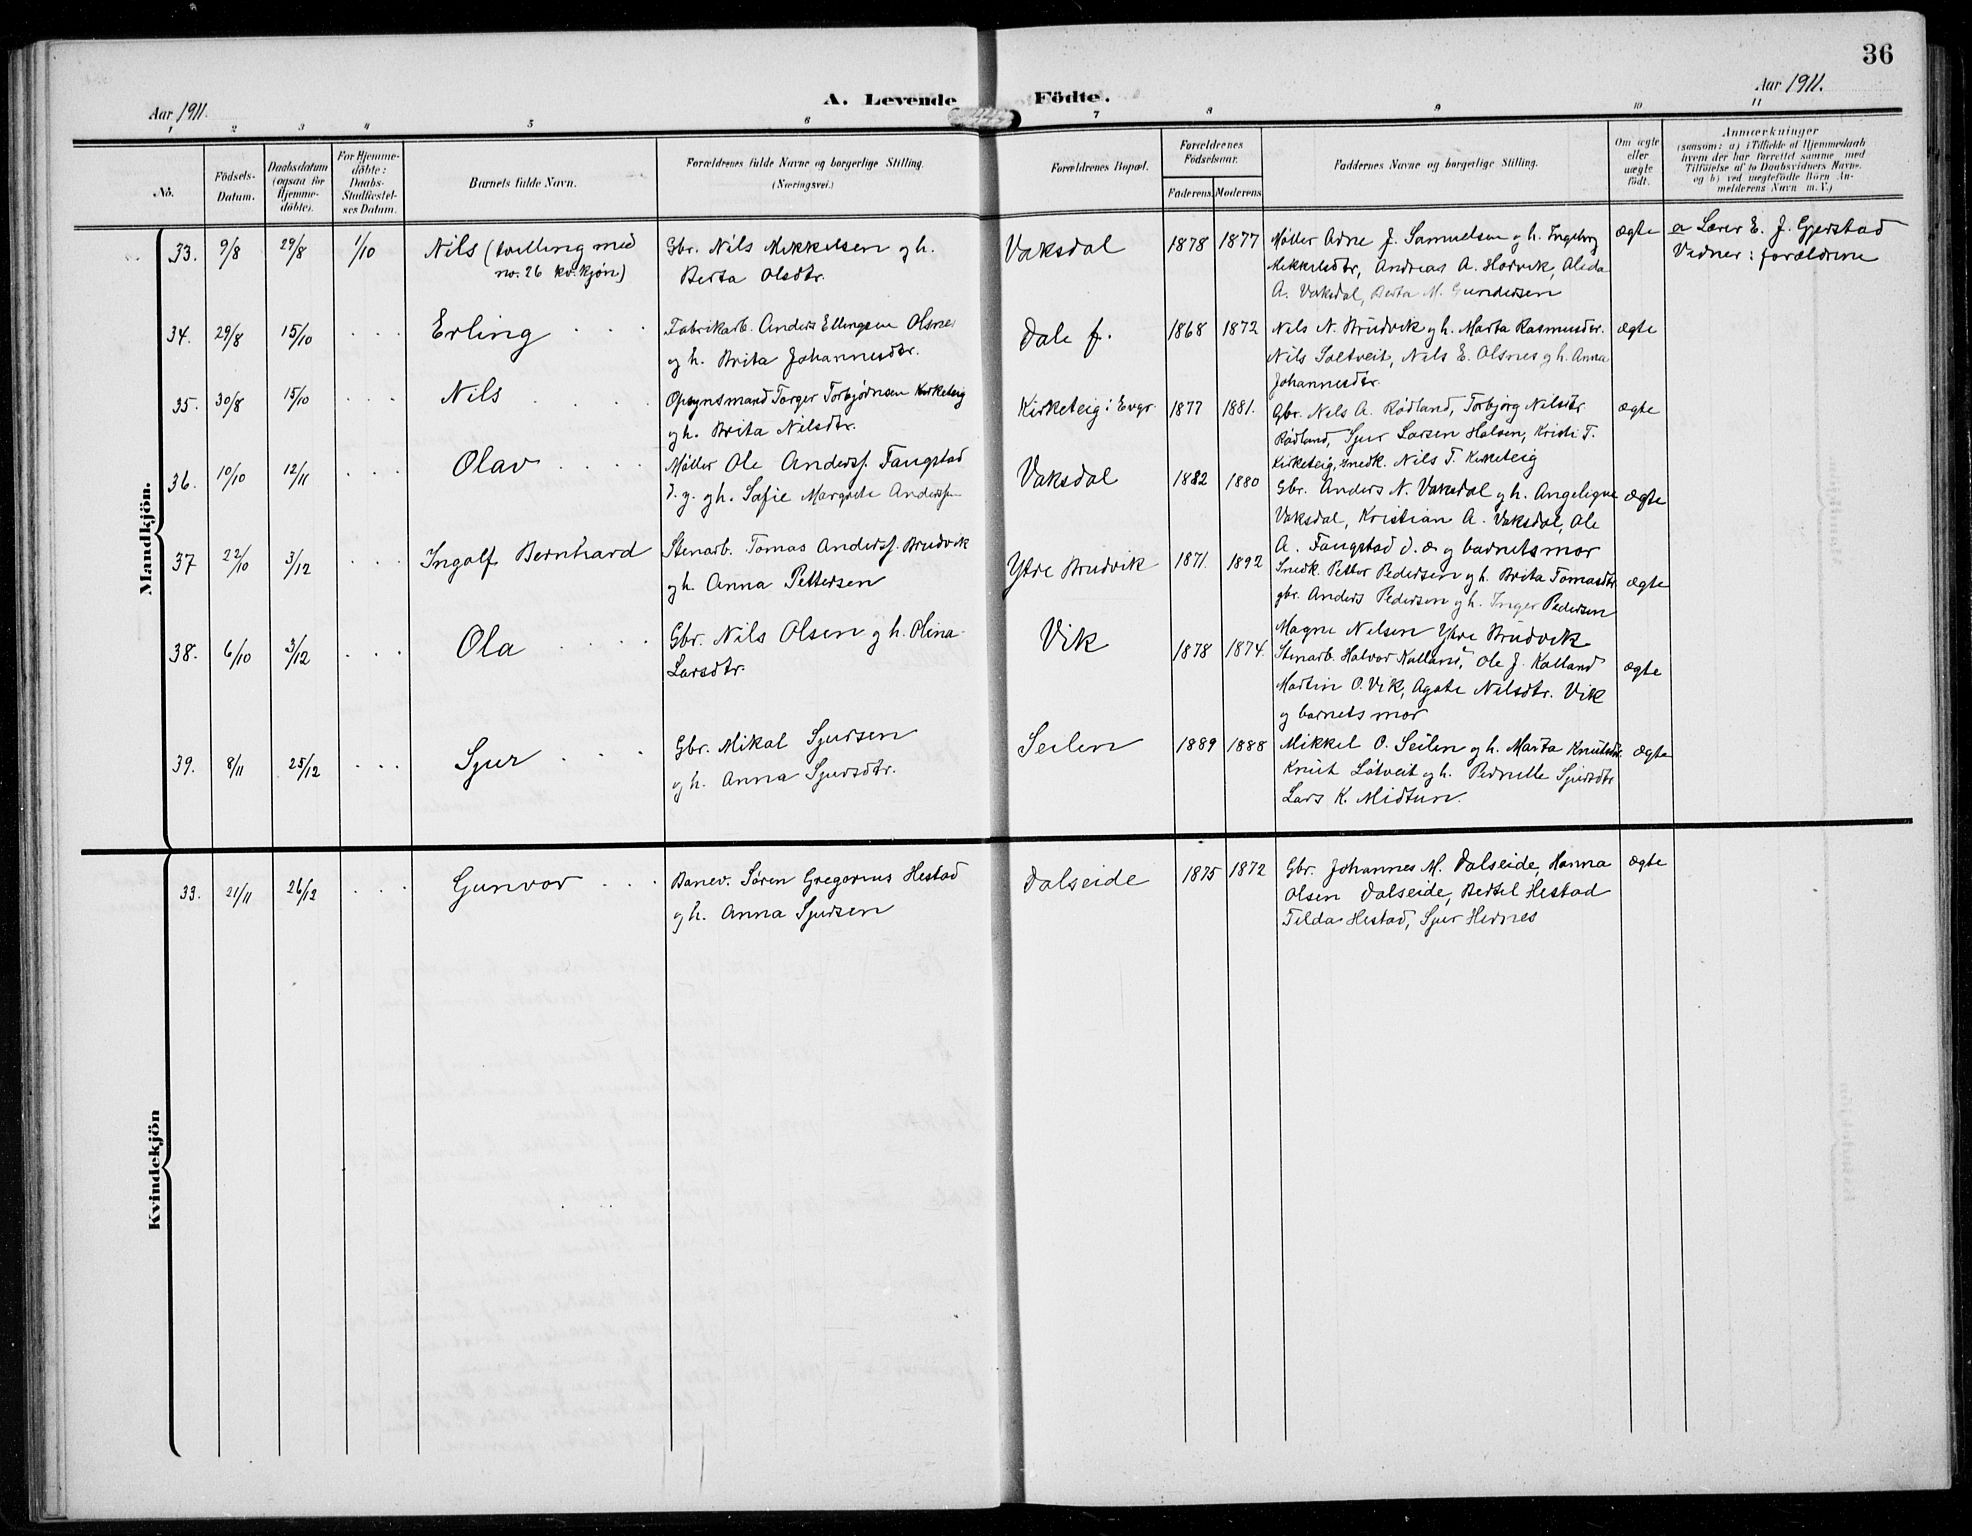 36
Aar 1911.
A. Levende Födte.
Aar 1911.
1 2 3 4 5 6 7 8 9 10 11
No.
Födsels-Datum.
Daabsdatum (ogsaa for Hjemme-döbte).
For Hjemme-döbte: Daabs-Stadfæstel-ses Datum.
Barnets fulde Navn.
Forældrenes fulde Navne og borgerlige Stilling.
(Næringsvei.)
Forældrenes Bopæl.
Forældrenes Födselsaar.
Faderens Moderens
Faddernes Navne og borgerlige Stilling.
Om ægte eller uægte födt.
Anmærkninger
(saasom: a) i Tilfælde af Hjemmedaab
hvem der har forrettet samme med
Tilföielse af to Daabsvidners Navne.
og b) ved uægtefödte Börn An-
melderens Navn m. V.)
Mandkjön.
33. 9/8 29/8 1/10 Nils (tvilling med
no. 26 kv.kjøn)
Gbr. Nils Mikkelsen og h.
Berta Olsdtr.
Vaksdal 1878 1877
Møller Arne J. Samuelsen og h. Ingeborg
Mikkelsdtr, Andreas A. Hodvik, Alida
A. Vaksdal, Berta M. Gundersen
ægte
a Lærer E. J. Gjerstad
Vidner: forældrene
34. 29/8 15/10 . . . Erling . . .
Fabrikarb. Anders Ellingsen Olsnes
og h. Brita Johannesdtr.
Dale f. 1868 1872
Nils N. Brudvik og h. Marta Rasmusdtr.
Nils Saltveit, Nils E. Olsnes og h. Anna
Johannesdtr.
ægte
35. 30/8 15/10 . . . Nils . . .
Opsynsmand Torger Torbjørnsen Kirketeig
og h. Brita Nilsdtr.
Kirketeig i Evgr. 1877 1881.
Gbr. Nils A. Rødland, Torbjørg Nilsdtr.
Rødland, Sjur Larsen Halsen, Kristi T.
Kirketeig, snedk. Nils T. Kirketeig
ægte
36. 10/10 12/11 . . . Olav . . . .
Møller Ole Anderss. Fangstad
d. y. og h. Sofie Margrete Anderssen
Vaksdal 1882 1880
Gbr. Anders N. Vaksdal og h. Angelique
Vaksdal, Kristian A. Vaksdal, Ole
A. Fangstad d. æ og barnets mor
ægte
37 22/10 3/12 . . . Ingolf Bernhard
Stenarb. Tomas Anderss. Brudvik
og h. Anna Pettersen
Ytre Brudvik 1871. 1892
Snedk. Petter Pedersen og h. Brita Tomasdtr.
gbr. Anders Pedersen og h. Inger Pedersen
Magne Nelsen Ytre Brudvik
ægte
38. 6/10 3/12 . . . Ola . . .
Gbr. Nils Olsen og h. Olina
Larsdtr.
Vik 1878 1874.
Stenarb. Halvor Kalland, Ole J. Kalland
Martin O. Vik, Agate Nilsdtr. Vik
og barnets mor
ægte
39. 8/11 25/12 . . . Sjur . . .
Gbr. Mikal Sjursen
og h. Anna Sjursdtr.
Seilen 1889 1888
Mikkel O. Seilen og h. Marta Knutsdtr.
Knut Låtveit og h. Pernille Sjursdtr
Lars K. Midtun.
ægte
Kvindekjön
33. 21/11 26/12 . . . Gunvor . . .
Banev. Søren Gregorius Hestad
og h. Anna Sjursen
Dalseide 1875 1872
Gbr. Johannes M. Dalseide, Hanna
Olsen Dalseide, Bertel Hestad
Tilda Hestad, Sjur Hernes
ægte